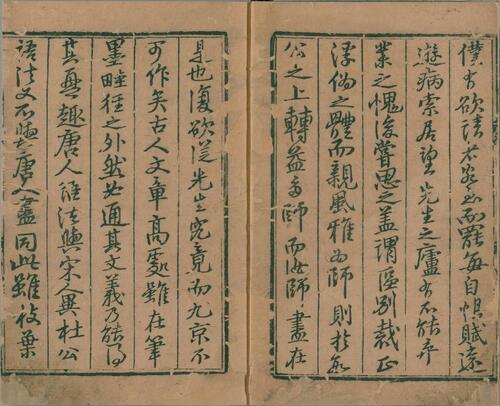 欲請而罷每自恨賦遠
遊病索居望先生之廬不能卒
業之愧後嘗思之蓋謂區別裁正
浮偽之體而親風雅為師則於無
公之上轉益多師而汝師盡在
是也復欲從先生究竟而九京不
可作矣古人文章高處雖在筆
墨畦徑之外然必通其文義乃能得
其趣唐人語法與宋人異杜公
語法又不與唐人盡同此雖枝葉